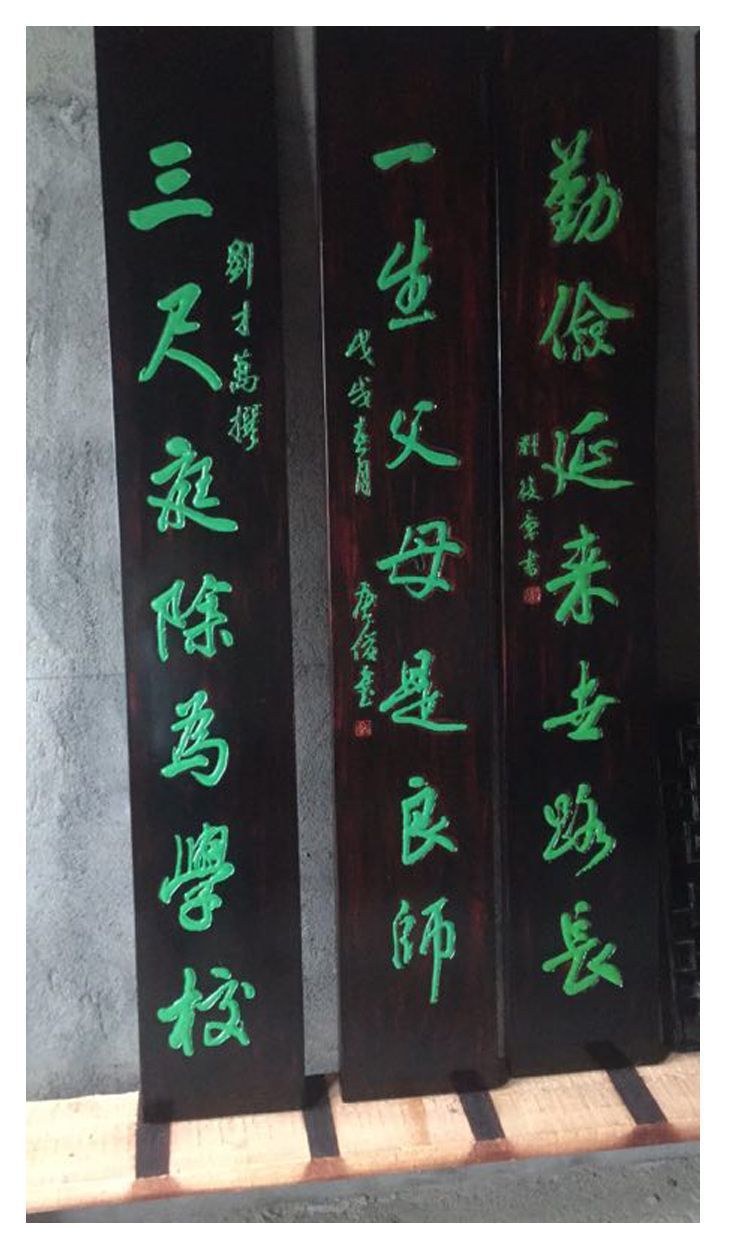 勤儉延来世路長
一生父母是良師
戊戌春月
三尺庭除為學校
劉才萬撰